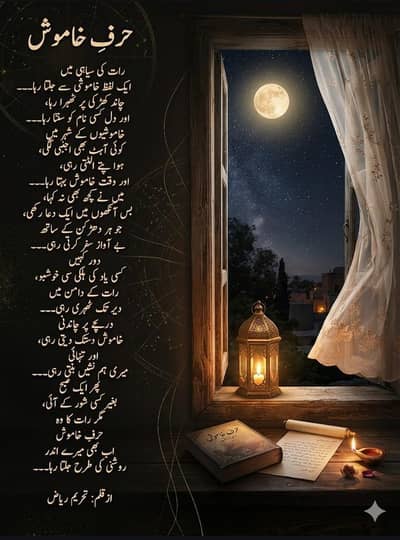 حرفِ خاموش
رات کی سیاہی میں
ایک لفظ خاموشی سے جلتا رہا۔۔۔
چاند کھڑکی پر ٹھہرا رہا،
اور دل کسی نام کو سنتا رہا۔۔۔
خاموشیوں کے شہر میں
کوئی آہٹ بھی اجنبی لگی،
ہوا پتے الٹتی رہی،
اور وقت خاموش بہتا رہا۔۔۔
میں نے کچھ بھی نہ کہا،
بس آنکھوں میں ایک دعا رکھی،
جو ہر دھڑکن کے ساتھ
بے آواز سفر کرتی رہی۔۔۔
دور کہیں
کسی یاد کی ہلکی سی خوشبو،
رات کے دامن میں
دیر تک ٹھہری رہی۔۔۔
دریچے پر چاندنی
خاموش دستک دیتی رہی،
اور تنہائی
میری ہم نشیں بنتی رہی۔۔۔
پھر ایک صبح
بغیر کسی شور کے آئی،
مگر رات کا وہ
حرفِ خاموش
اب بھی میرے اندر
روشنی کی طرح جلتا رہا۔۔۔
ازقلم: تحریم ریاض